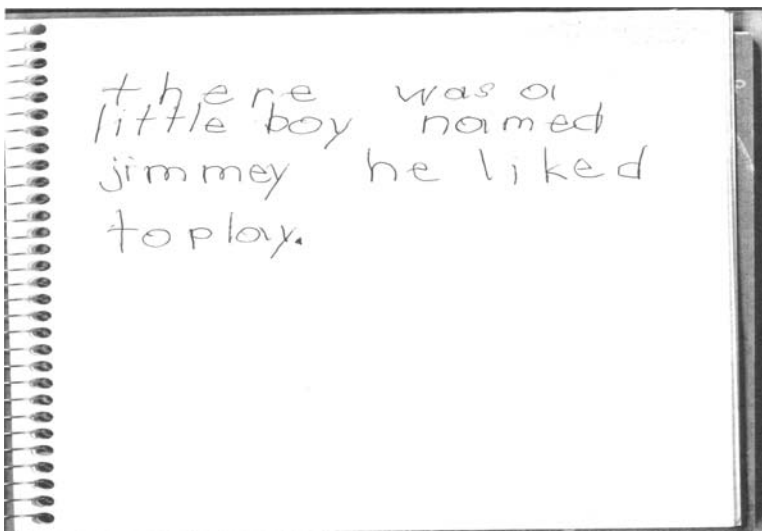 there was a
little boy named
jimmey he liked
toplay.